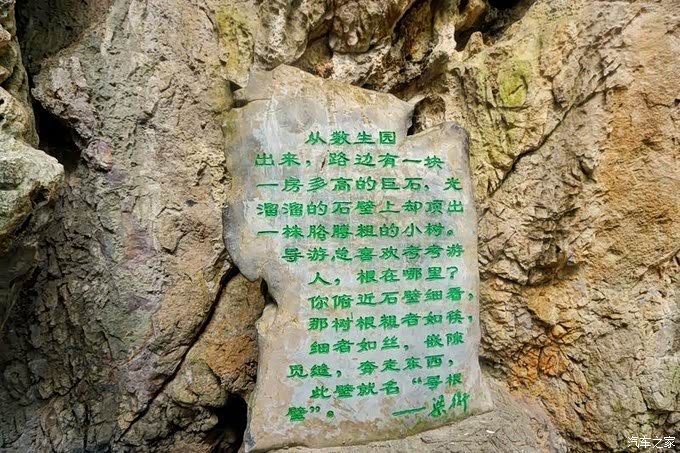 从数生园
出来，路边有一块
一房多高的巨石，光
溜溜的石壁上却顶出
一株胳膊粗的小树。
导游总喜欢考考游
人，根在哪里？
你俯近石壁细看，
那树根粗者如筷，
细者如丝，嵌隙
觅缝，奔走东西，
此壁就名“寻根
壁”。——梁衡
汽车之家